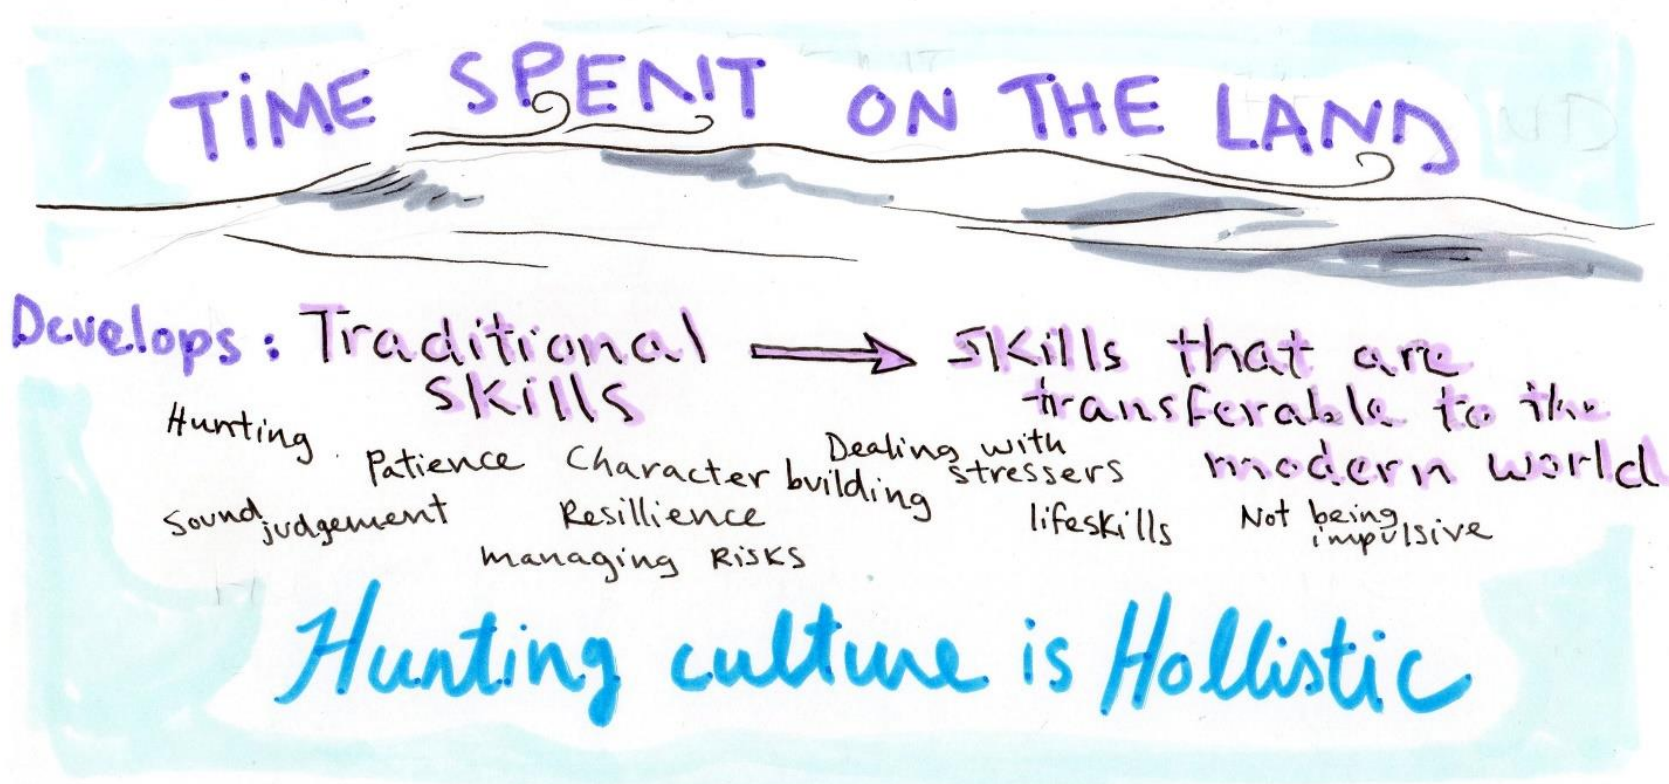 TiME SPENT ON THE LAND
Develops: Traditional skills → skills that are transferable to the modern world
Hunting
Patience
Character building
Dealing with stressers
Sound judgement
Resillience
lifeskills
Not being impulsive
managing Risks
Hunting culture is Hollistic